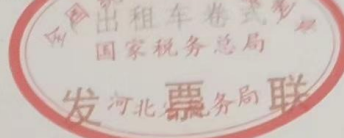 全国
出租车卷式
国家税务总局
发票联
河北省税务局